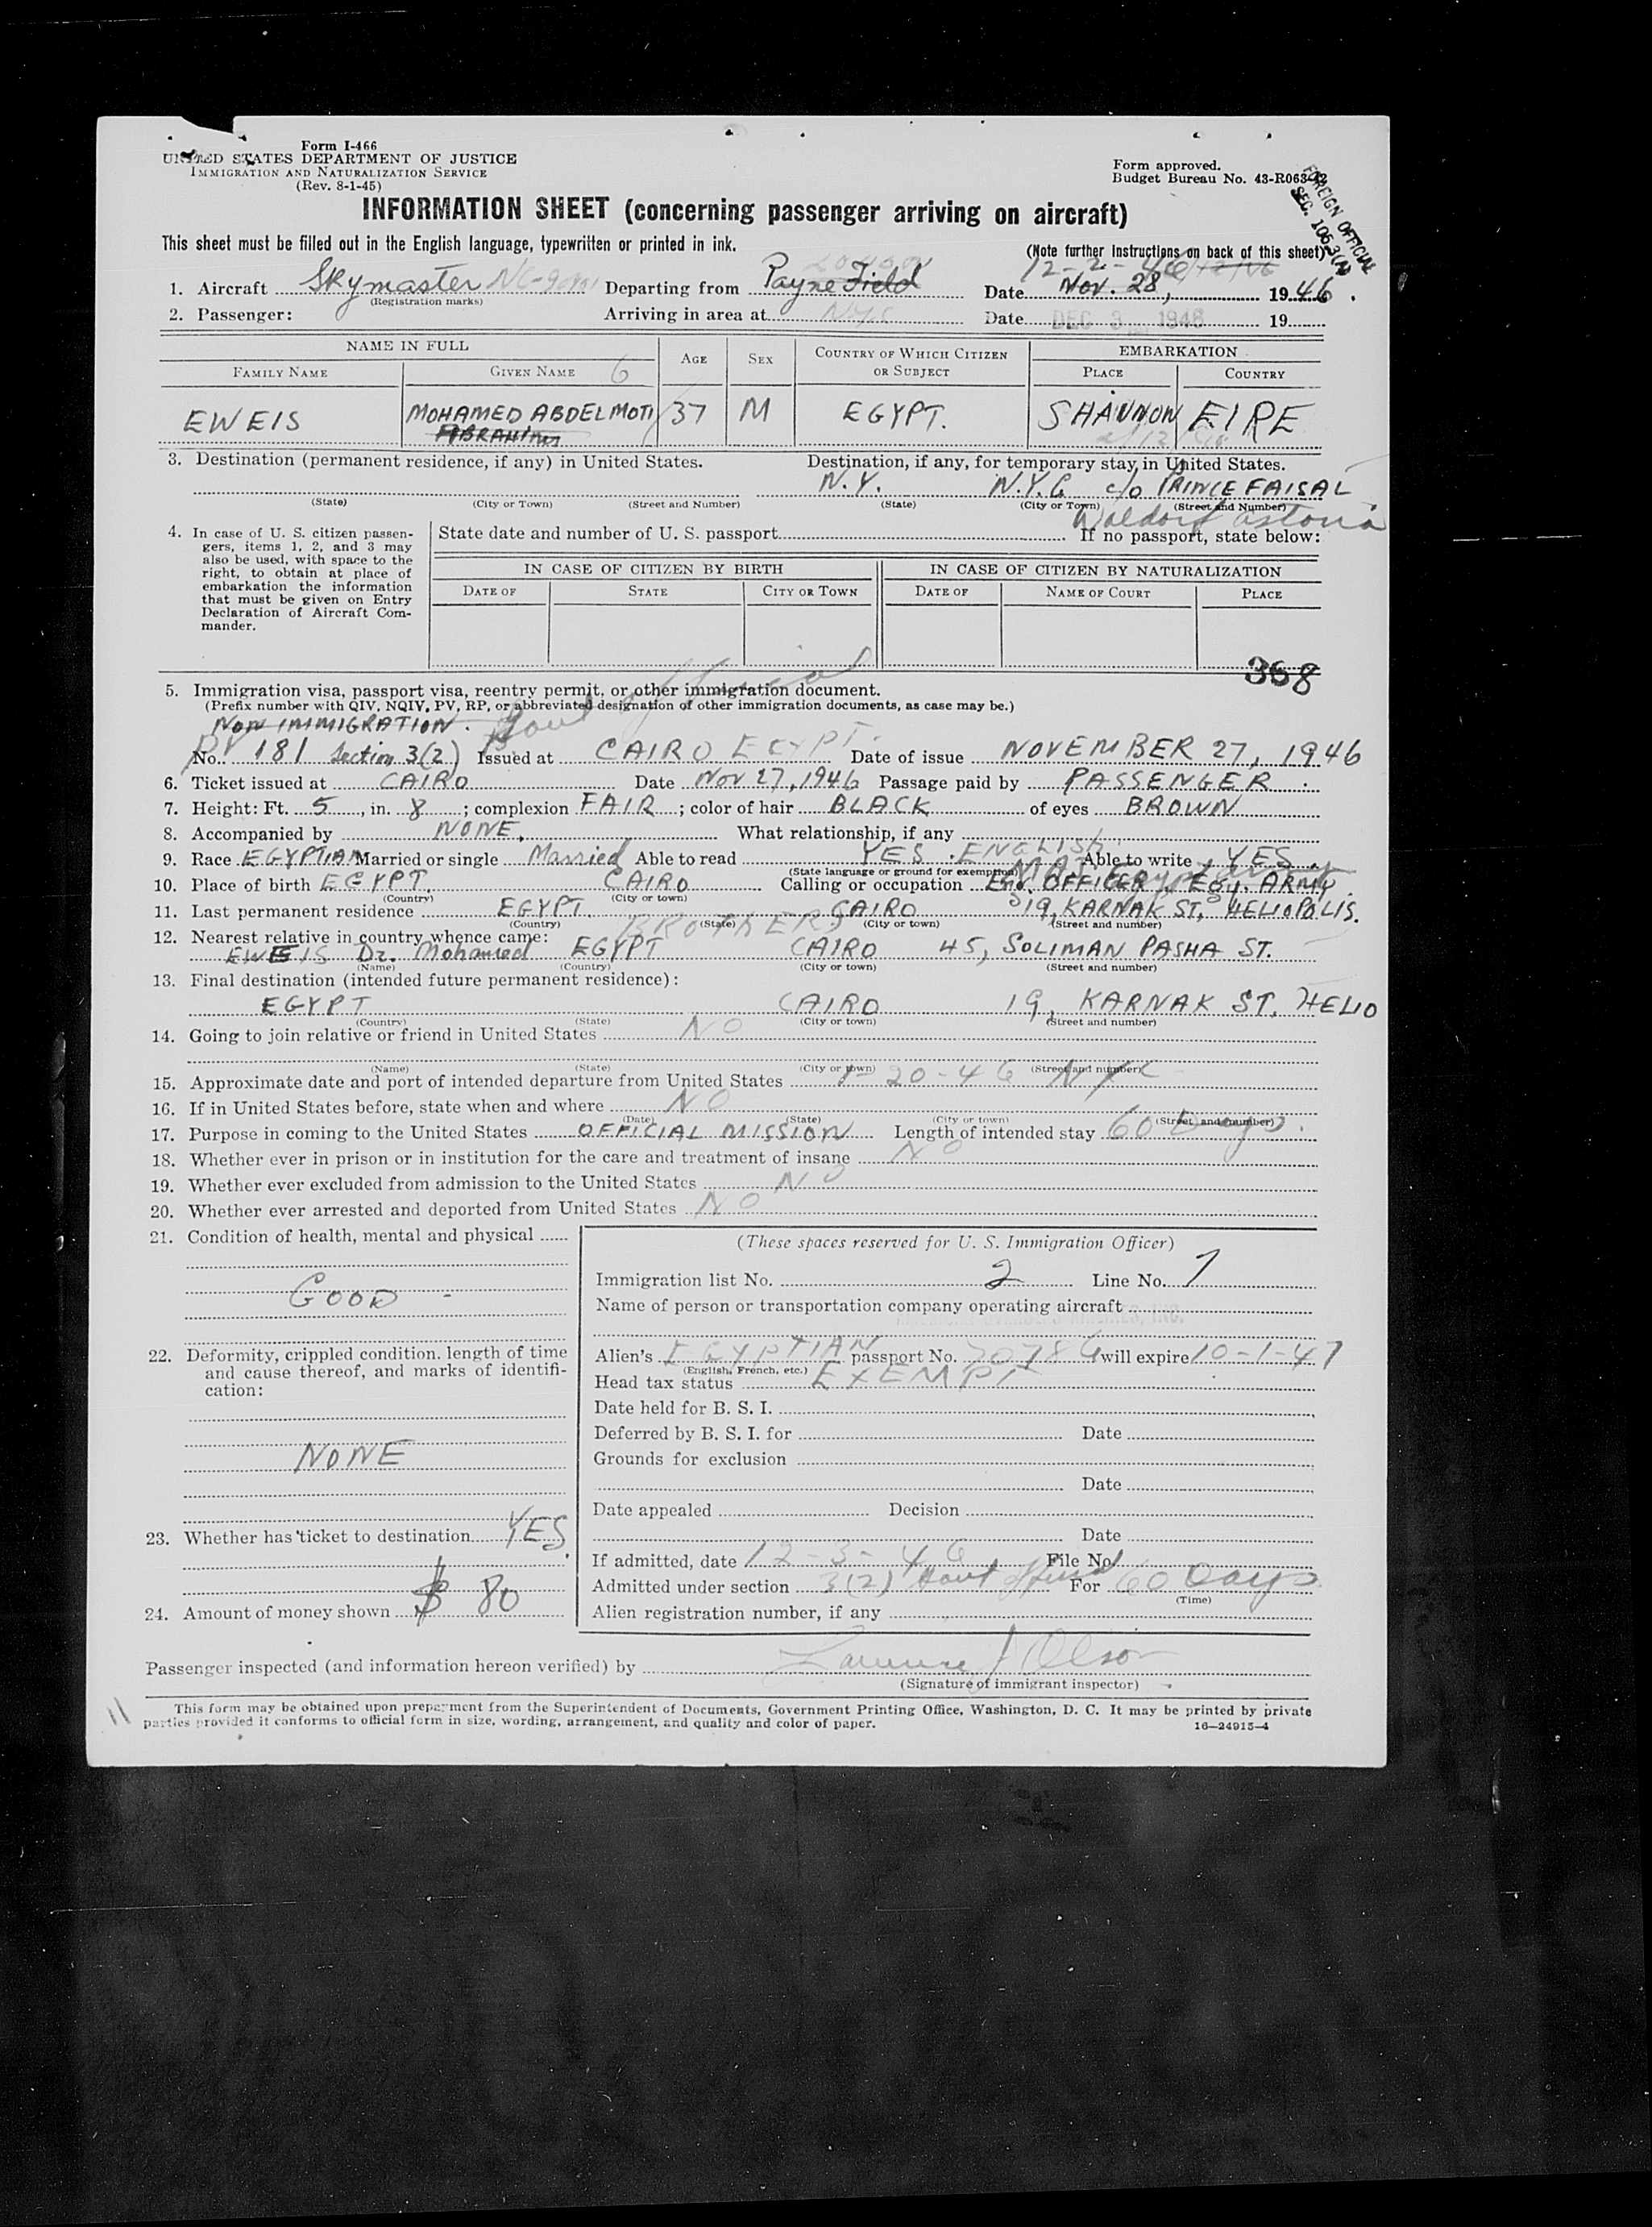 Form I-466
UNITED STATES DEPARTMENT OF JUSTICE
IMMIGRATION AND NATURALIZATION SERVICE
(Rev. 8-1-45)
Form approved.
Budget Bureau No. 43-R063
FOREIGN OFFICIAL
SEC.
INFORMATION SHEET (concerning passenger arriving on aircraft)
This sheet must be filled out in the English language, typewritten or printed in ink.
(Note further instructions on back of this sheet)
12-2-46
1. Aircraft Skymaster Departing from Payne Field Date Nov. 28, 1946.
(Registration marks)
2. Passenger: Arriving in area at NYC Date DEC 3 1946 19
NAME IN FULL AGE SEX COUNTRY OF WHICH CITIZEN OR SUBJECT EMBARKATION
FAMILY NAME GIVEN NAME 6 PLACE COUNTRY
EWEIS MOHAMED ABDEL MOTI 37 M EGYPT. SHANNON EIRE
IBRAHIM
3. Destination (permanent residence, if any) in United States. Destination, if any, for temporary stay in United States.
N.Y. N.Y.C. c/o PRINCE FAISAL
(State) (City or Town) (Street and Number) (State) (City or Town) (Street and Number)
Waldorf Astoria
4. In case of U. S. citizen passengers, items 1, 2, and 3 may also be used, with space to the right, to obtain at place of embarkation the information that must be given on Entry Declaration of Aircraft Commander.
State date and number of U. S. passport If no passport, state below:
IN CASE OF CITIZEN BY BIRTH IN CASE OF CITIZEN BY NATURALIZATION
DATE OF STATE CITY OR TOWN DATE OF NAME OF COURT PLACE
368
5. Immigration visa, passport visa, reentry permit, or other immigration document.
(Prefix number with QIV, NQIV, PV, RP, or abbreviated designation of other immigration documents, as case may be.)
NON IMMIGRATION. Govt official
PV No. 181 Section 3(2) Issued at CAIRO EGYPT. Date of issue NOVEMBER 27, 1946
6. Ticket issued at CAIRO Date Nov 27, 1946 Passage paid by PASSENGER.
7. Height: Ft. 5, in. 8; complexion FAIR; color of hair BLACK of eyes BROWN
8. Accompanied by NONE. What relationship, if any
9. Race EGYPTIAN Married or single Married Able to read YES. ENGLISH Able to write YES.
(State language or ground for exemption)
10. Place of birth EGYPT. CAIRO Calling or occupation OFFICER, Egy. ARMY
(Country) (City or town)
11. Last permanent residence EGYPT. CAIRO 19, KARNAK ST, HELIOPOLIS.
(Country) (State) (City or town) (Street and number)
12. Nearest relative in country whence came: BROTHER
EWEIS Dr. Mohamed EGYPT CAIRO 45, SOLIMAN PASHA ST.
(Name) (Country) (City or town) (Street and number)
13. Final destination (intended future permanent residence):
EGYPT CAIRO 19, KARNAK ST. HELIO
(Country) (State) (City or town) (Street and number)
14. Going to join relative or friend in United States NO
(Name) (State) (City or town) (Street and number)
15. Approximate date and port of intended departure from United States 1-20-46 NYC
16. If in United States before, state when and where NO
(Date) (State) (City or town) (Street and number)
17. Purpose in coming to the United States OFFICIAL MISSION Length of intended stay 60 Days.
18. Whether ever in prison or in institution for the care and treatment of insane NO
19. Whether ever excluded from admission to the United States NO
20. Whether ever arrested and deported from United States NO
21. Condition of health, mental and physical
GOOD -
22. Deformity, crippled condition, length of time and cause thereof, and marks of identification:
NONE
23. Whether has ticket to destination YES.
24. Amount of money shown $ 80
(These spaces reserved for U. S. Immigration Officer)
Immigration list No. 2 Line No. 7
Name of person or transportation company operating aircraft
Alien's EGYPTIAN passport No. will expire 10-1-47
(English, French, etc.)
Head tax status EXEMPT
Date held for B. S. I.
Deferred by B. S. I. for Date
Grounds for exclusion
Date
Date appealed Decision
Date
If admitted, date 12-3-46 File No.
Admitted under section 3(2) Govt For 60 Days
(Time)
Alien registration number, if any
Passenger inspected (and information hereon verified) by Olson
(Signature of immigrant inspector)
11
This form may be obtained upon prepayment from the Superintendent of Documents, Government Printing Office, Washington, D. C. It may be printed by private
parties provided it conforms to official form in size, wording, arrangement, and quality and color of paper.
16—24915-4